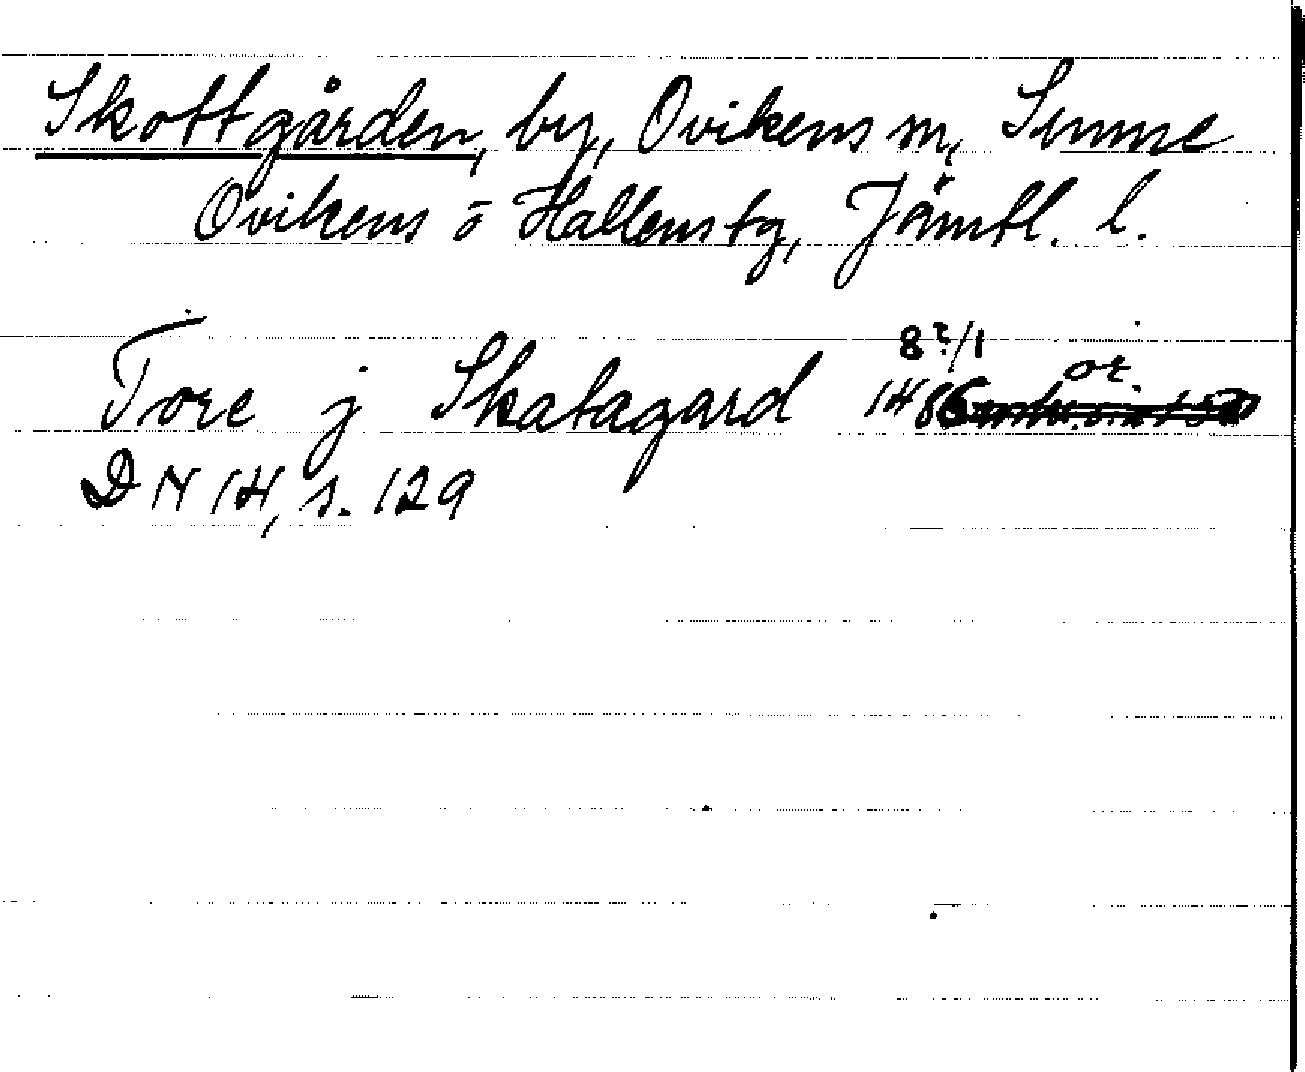 Skottgården, by, Ovikens sn, Sunne
Ovikens o Hallens tg, Jämtl. l.
8?/1 or.
Tore j Skatagard 1486
DN 14, s. 129